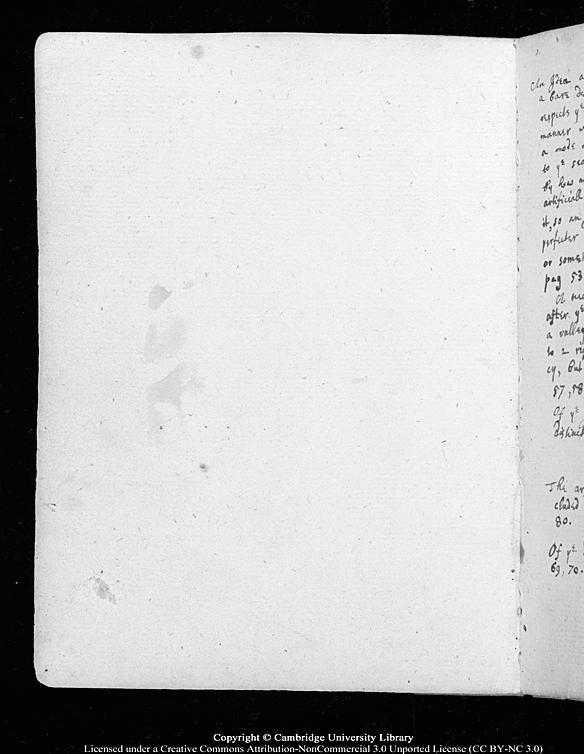 An Idea a
a bare
respects yᵉ
manner
a mode
to yᵉ
by how m
artificiall
it, so an
perfecter
or some
pag 53
A
after yᵉ
a valley
to 2 ri
cy, But
57, 58
Of yᵉ
distinct
The ar
cluded
80.
Of yᵉ
69, 70.
Copyright © Cambridge University Library
Licensed under a Creative Commons Attribution-NonCommercial 3.0 Unported License (CC BY-NC 3.0)